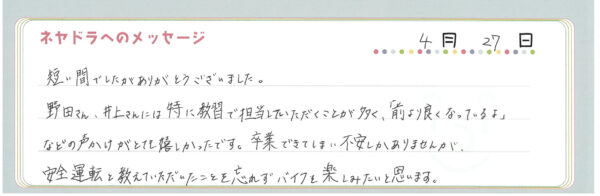 ネヤドラへのメッセージ
4月 27日
短い間でしたがありがとうございました。
野田さん、井上さんには特に教習で担当していただくことが多く、「前より良くなっているよ」
などの声かけがとても嬉しかったです。卒業できてしまい不安しかありませんが、
安全運転と教えていただいたことを忘れずバイクを楽しみたいと思います。